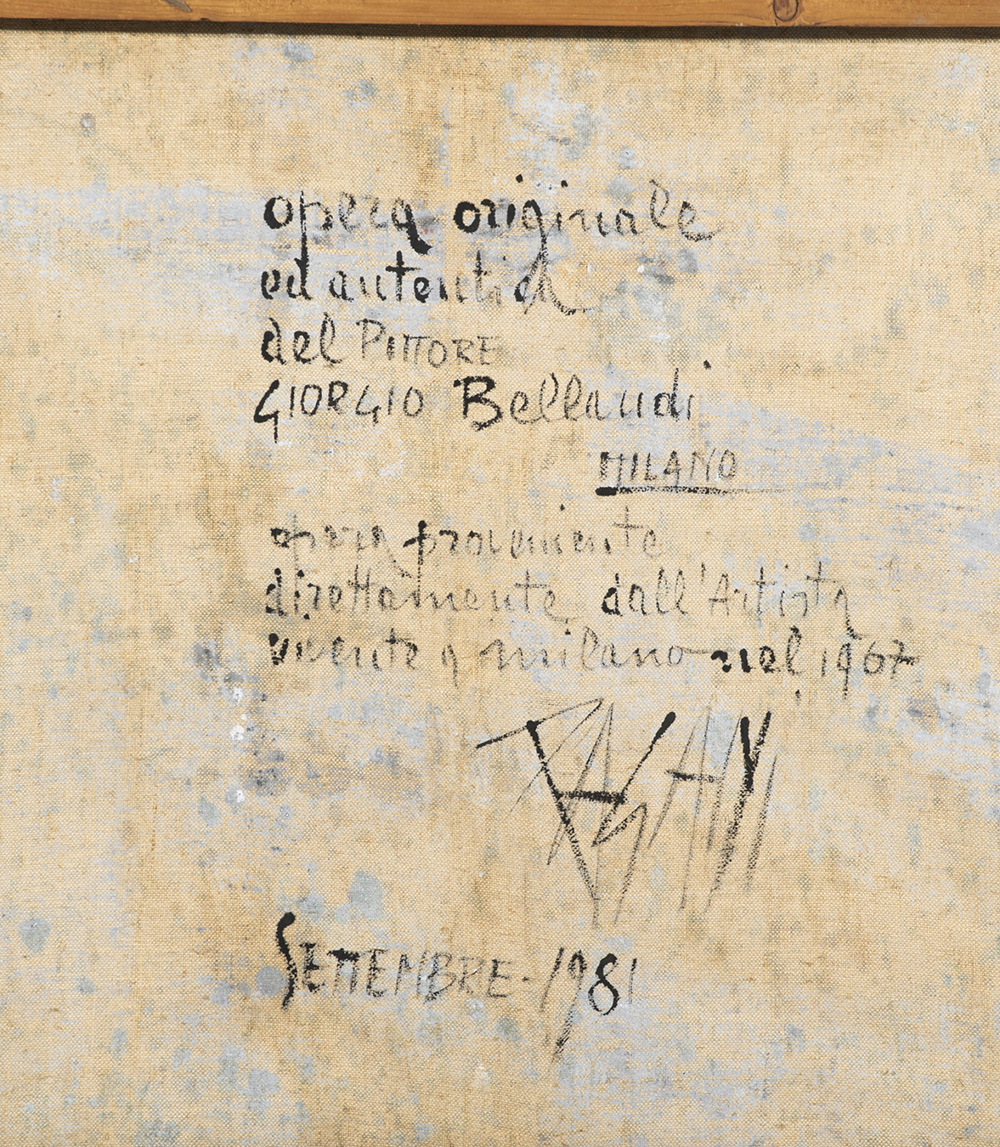 opera originale
ed autentica
del PITTORE
GIORGIO Bellandi
MILANO
opera proveniente
direttamente dall'Artista
vivente a milano nel 1967
SETTEMBRE - 1981